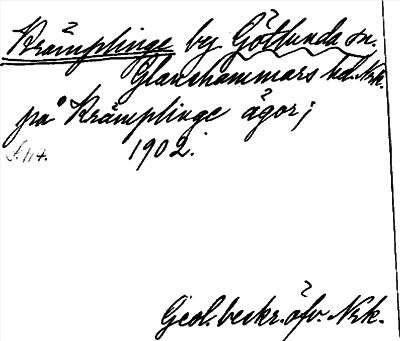 Krämplinge by Götlunda sn.
Glanshammars hd. Nrk.
på Krämplinge ägor;
S. 114. 1902.
Geol. beskr. öfv. Nrk.